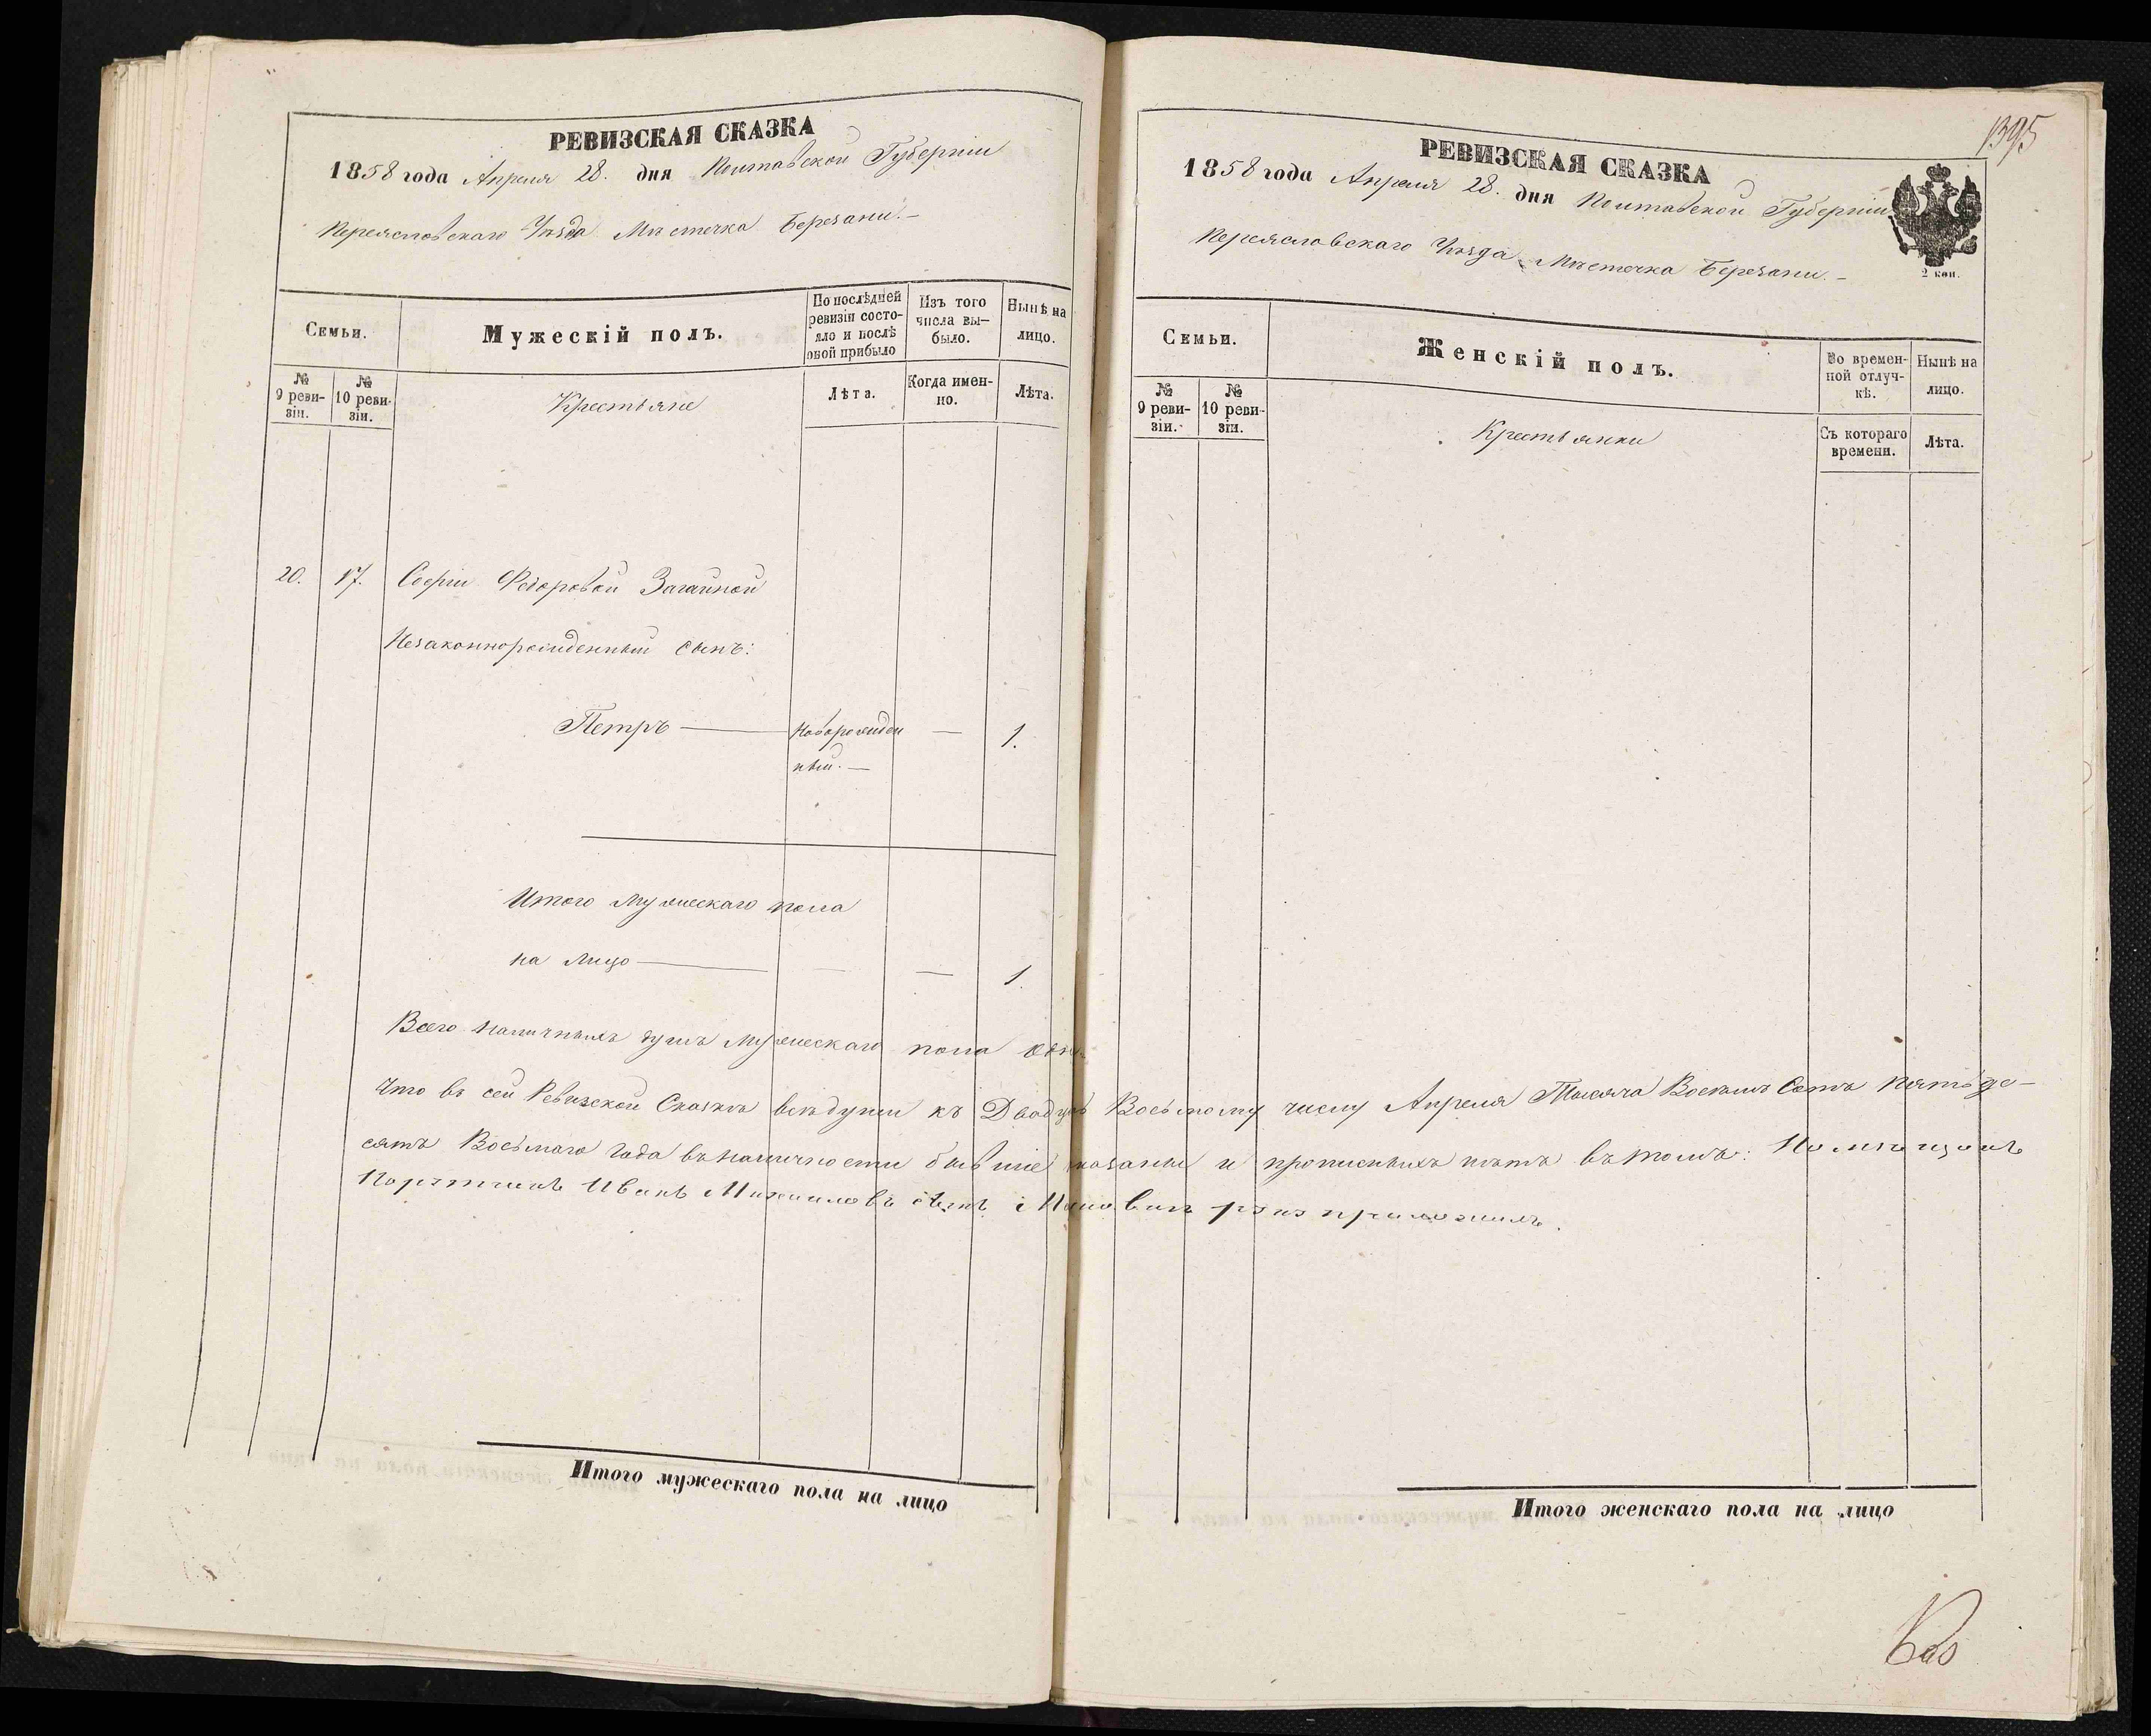 РЕВИЗСКАЯ СКАЗКА
1858 года Апреля 28. дня Полтавской Губерніи
Переяславскаго Уѣзда Мѣстечка Березани.
Семьи.
Мужескій полъ.
По послѣдней ревизіи состояло и послѣ оной прибыло
Изъ того числа выбыло.
Нынѣ на лицо.
№ 9 ревизіи.
№ 10 ревизіи.
Крестьяне
Лѣта.
Когда именно.
Лѣта.
20. 17. Софіи Федоровой
Незаконнорожденный сынъ:
Петръ — новорожден — 1.
ный. —
Итого мужескаго пола
на лицо — — — 1.
Всего наличныхъ душъ мужескаго пола
Что въ сей Ревизской Сказкѣ всѣ души къ Двадцать Восьмому числу Апреля Тысяча Восемь Сотъ Пятьде-
сятъ Восьмаго года въ наличности бывшіе показаны и прописныхъ нѣтъ въ томъ: Помѣщикъ
Поручикъ Иванъ Михайловъ сынъ руку приложилъ.
Итого мужескаго пола на лицо
1395
РЕВИЗСКАЯ СКАЗКА
1858 года Апреля 28. дня Полтавской Губерніи
Переяславскаго Уѣзда Мѣстечка Березани.
2 коп.
Семьи.
Женскій полъ.
Во временной отлучкѣ.
Нынѣ на лицо.
№ 9 ревизіи.
№ 10 ревизіи.
Крестьянки
Съ котораго времени.
Лѣта.
Итого женскаго пола на лицо